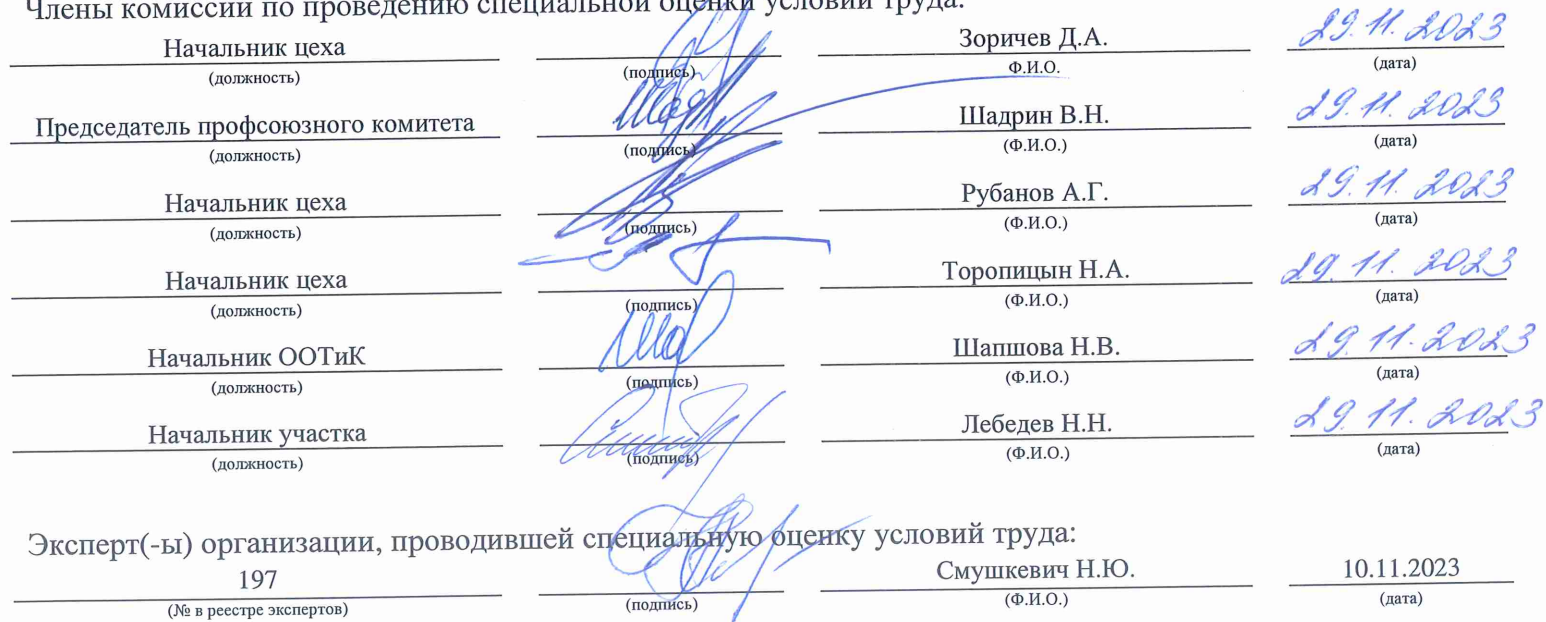 Члены комиссии по проведению специальной оценки условий труда:
Начальник цеха Зоричев Д.А. 29.11.2023
(должность) (подпись) Ф.И.О. (дата)
Председатель профсоюзного комитета Шадрин В.Н. 29.11.2023
(должность) (подпись) (Ф.И.О.) (дата)
Начальник цеха Рубанов А.Г. 29.11.2023
(должность) (подпись) (Ф.И.О.) (дата)
Начальник цеха Торопицын Н.А. 29.11.2023
(должность) (подпись) (Ф.И.О.) (дата)
Начальник ООТиК Шапшова Н.В. 29.11.2023
(должность) (подпись) (Ф.И.О.) (дата)
Начальник участка Лебедев Н.Н. 29.11.2023
(должность) (подпись) (Ф.И.О.) (дата)
Эксперт(-ы) организации, проводившей специальную оценку условий труда:
197 Смушкевич Н.Ю. 10.11.2023
(№ в реестре экспертов) (подпись) (Ф.И.О.) (дата)